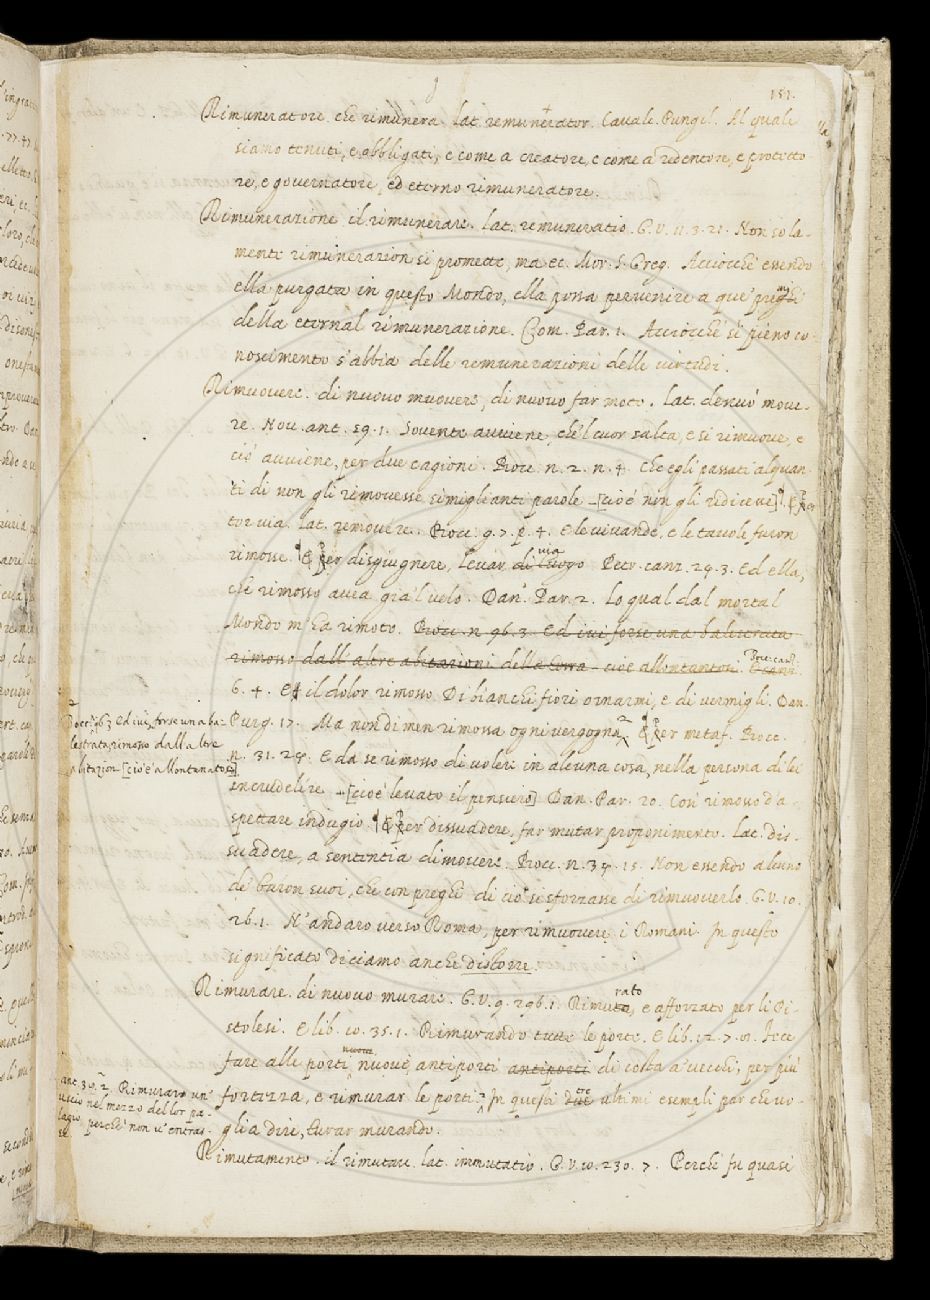 151.
Rimuneratore che rimunera. lat. remunerator. Cavalc. Pungil. Al quale
siamo tenuti, e obbligati, e come a creatore, e come a redentore, e protetto-
re, e governatore, ed eterno rimuneratore.
Rimunerazione il rimunerare. lat. remuneratio. G.V. 11. 3. 21. Non sola-
mente rimunerazion si promette, ma ec. Mor. S. Greg. Acciocchè essendo
ella purgata in questo Mondo, ella possa pervenire a que'
della eternal rimunerazione. Com. Par. 1. Acciocchè si pieno co-
noscimento s'abbia delle remunerazioni delle virtudi.
Rimuovere. di nuovo muovere, di nuovo far moto. lat. denuò move-
re. Nov. ant. 59. 1. Sovente avviene, che'l cuor salta, e si rimuove, e
ciò avviene, per due cagioni. Bocc. n. 2. n. 4. Che egli passati alquan-
ti dì non gli rimovesse simiglianti parole [cioè non gli redicesse]. ¶ Per
tor via. lat. removere. Bocc. g. 7. p. 4. E le vivande, e le tavole furon
rimosse. ¶ Per disgiugnere, levar via di luogo Petr. canz. 29. 3. Ed ella,
che rimosso avea già'l velo. Dan. Par. 2. Lo qual dal mortal
Mondo m'ha rimoto. Bocc. n. 96. 3. Ed ivi forse una balestrata
rimosso dall'altre abitazioni della terra cioè allontanatosi. Petr. canz.
6. 4. E'l dolor rimosso Di bianchi fiori ornarmi, e di vermigli. Dan.
Purg. 17. Ma nondimen rimossa ogni vergogna ¶ Per metaf. Bocc.
n. 31. 25. E da se rimosso di volere in alcuna cosa, nella persona di lei
incrudelire [cioè levato il pensiero] Dan. Par. 20. Così rimosso d'a-
spettare indugio. ¶ Per dissuadere, far mutar proponimento. lat. dis-
suadere, a sententia dimovere. Bocc. n. 34. 15. Non essendo alcuno
de' baron suoi, che con preghi di ciò si sforzasse di rimuoverlo. G.V. 10.
26. 1. N'andaro verso Roma, per rimuovere i Romani. In questo
significato diciamo anche distorre.
Bocc. n. 96. 3. Ed ivi forse una ba-
lestrata rimosso dall'altre
abitazion [cioè allontanatosi]
Rimurare. di nuovo murare. G.V. 9. 296. 1. Rimurato, e afforzato per li Pi-
stolesi. E lib. 10. 35. 1. Rimurando tutte le porte. E lib. 12. 7. Fece
fare alle porti nuove antiporti antiporti di costa a' vecchi, per più
fortezza, e rimurar le porti. In questi due tre ultimi esempli par che vo-
glia dire, turar murando.
ant. 30. 2. Rimurare un'
uscio nel mezzo del lor pa-
lagio, perchè non v'entras-
se.
Rimutamento. il rimutare. lat. immutatio. G.V. 10. 230. 7. Perchè fu quasi